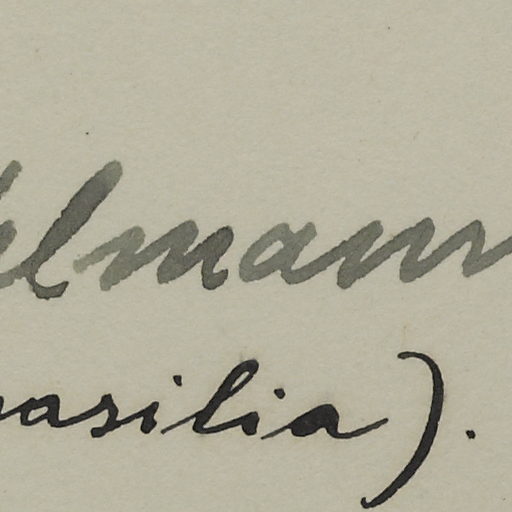 elmann
asilia).